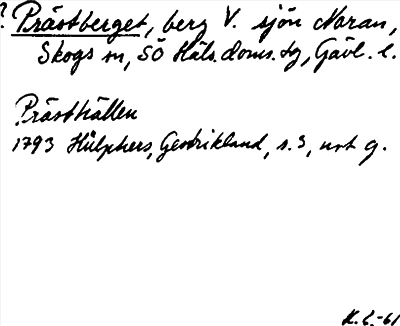 ? Prästberget, berg V. sjön Naran,
Skogs sn, SÖ Häls. doms. tg, Gävl. l.
Prästhällen
1793 Hülphers, Gestrikland, s. 3, not g.
K.L.-61